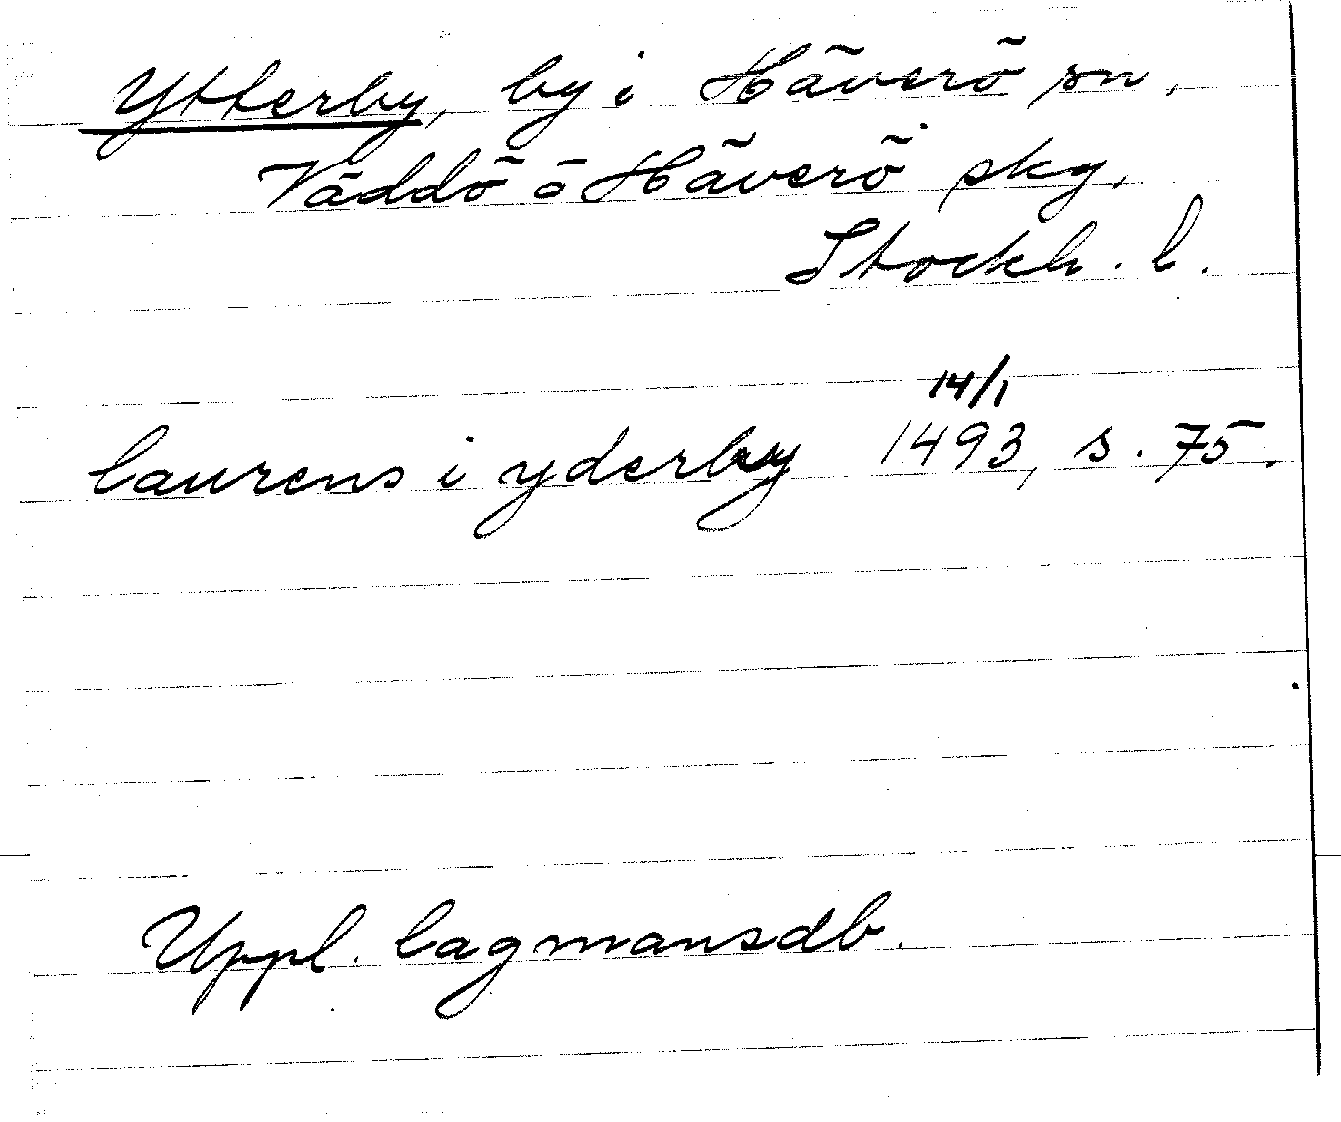 Ytterby, by i Häverö sn,
Väddö o Häverö skg,
Stockh. l.
14/1
laurens i yderby 1493, s. 75.
Uppl. lagmansdb.